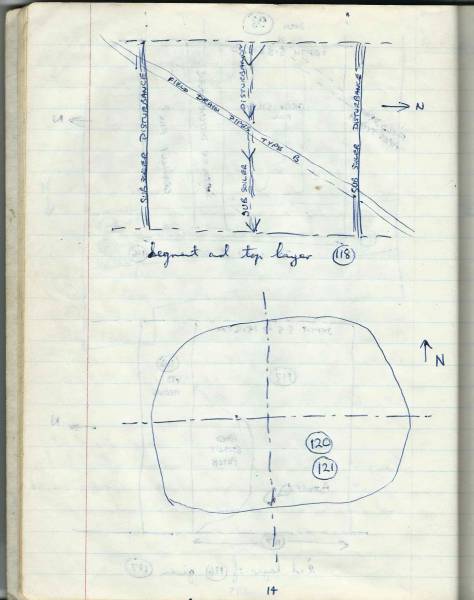 SUB SOILER DISTURBANCE
FIELD DRAIN PIPE TYPE B
SUB SOILER DISTURBANCE
SUB SOILER DISTURBANCE
N
Segment ad top layer 118
N
120
121
14